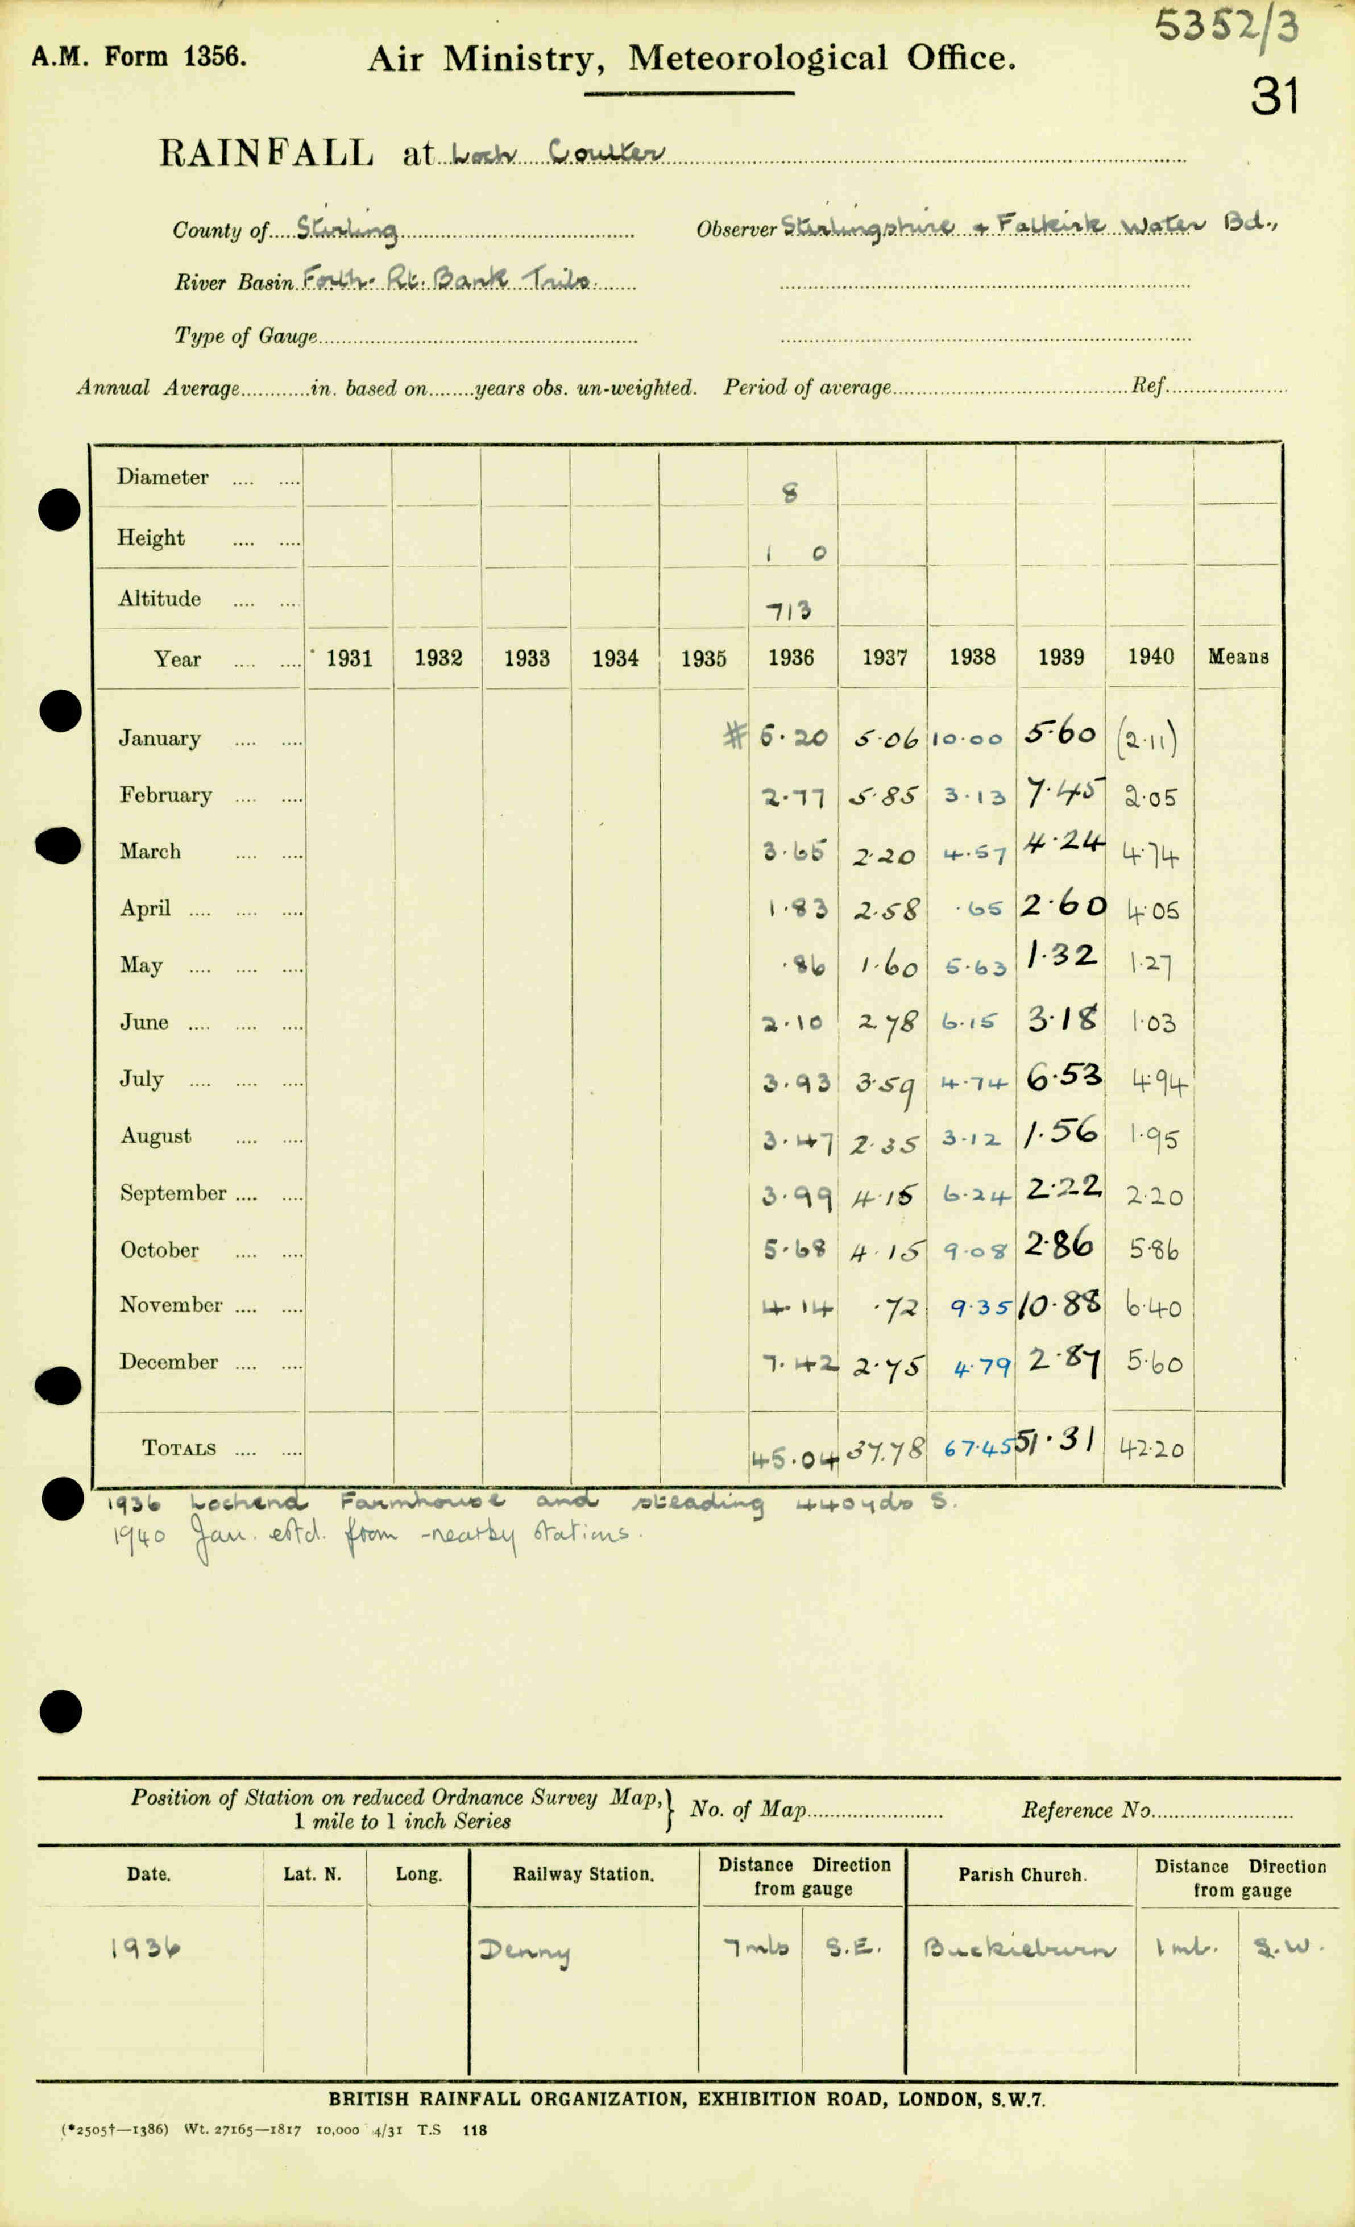 5352/3
A.M. Form 1356. Air Ministry, Meteorological Office.
31
RAINFALL at Loch Coulter
County of Stirling Observer Stirlingshire + Falkirk Water Bd.,
River Basin Forth. Rt. Bank Tribs.
Type of Gauge
Annual Average in. based on years obs. un-weighted. Period of average Ref.
Diameter 8
Height 1 0
Altitude 713
Year 1931 1932 1933 1934 1935 1936 1937 1938 1939 1940 Means
January # 5.20 5.06 10.00 5.60 (2.11)
February 2.77 5.85 3.13 7.45 2.05
March 3.65 2.20 4.57 4.24 4.74
April 1.83 2.58 .65 2.60 4.05
May .86 1.60 5.63 1.32 1.27
June 2.10 2.78 6.15 3.18 1.03
July 3.93 3.59 4.74 6.53 4.94
August 3.47 2.35 3.12 1.56 1.95
September 3.99 4.15 6.24 2.22 2.20
October 5.68 4.15 9.08 2.86 5.86
November 4.14 .72 9.35 10.88 6.40
December 7.42 2.75 4.79 2.87 5.60
TOTALS 45.04 37.78 67.45 51.31 42.20
1936 Lochend Farmhouse and steading 440yds S.
1940 Jan. estd. from nearby stations.
Position of Station on reduced Ordnance Survey Map, } No. of Map Reference No.
1 mile to 1 inch Series
Date. Lat. N. Long. Railway Station. Distance Direction from gauge Parish Church. Distance Direction from gauge
1936 Denny 7mls S.E. Buckieburn 1ml. S.W.
BRITISH RAINFALL ORGANIZATION, EXHIBITION ROAD, LONDON, S.W.7.
(*2505†—1386) Wt. 27165—1817 10,000 4/31 T.S 118